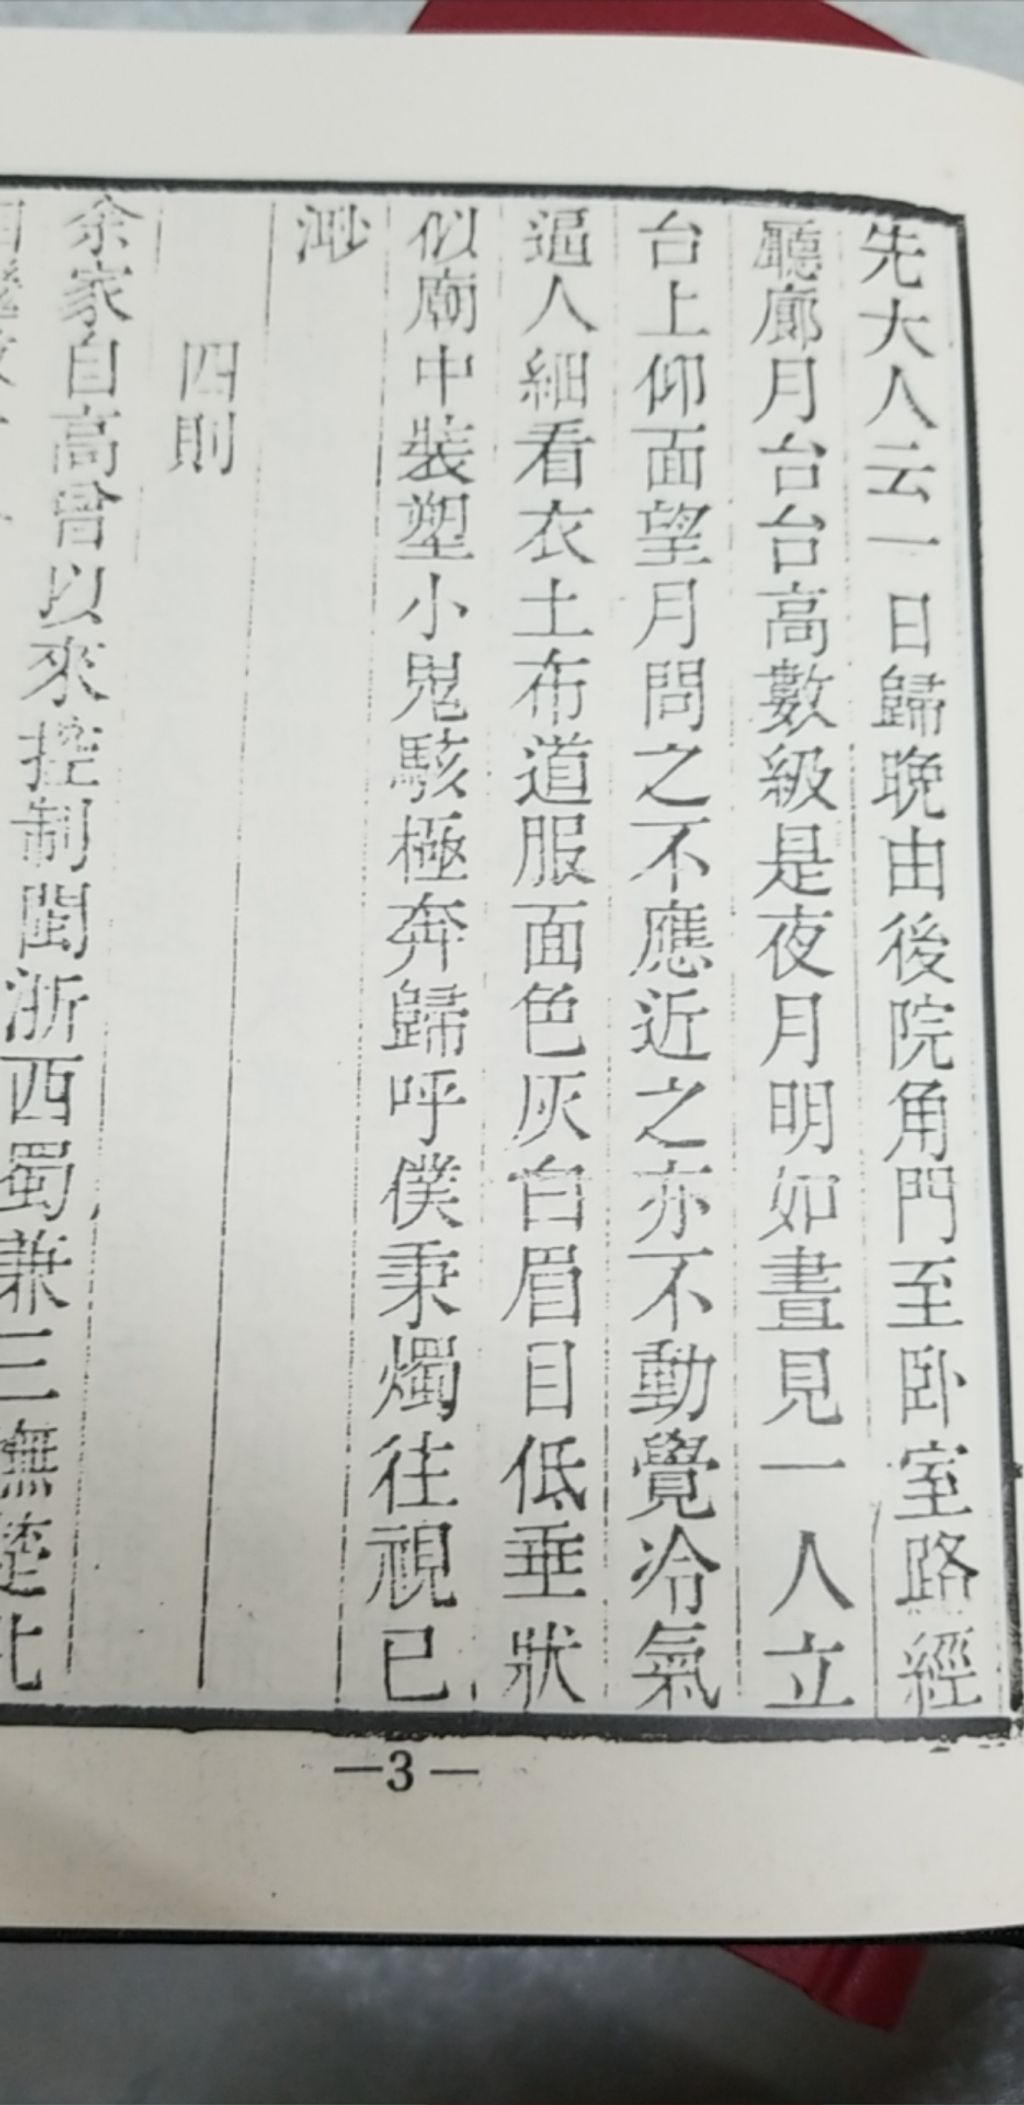 先大人云一日歸晚由後院角門至卧室路經
廳廊月台台高數級是夜月明如晝見一人立
台上仰面望月問之不應近之亦不動覺冷氣
逼人細看衣土布道服面色灰白眉目低垂狀
似廟中裝塑小鬼駭極奔歸呼僕秉燭往視已
渺
四則
余家自高曾以來控制閩浙西蜀兼三
—3—